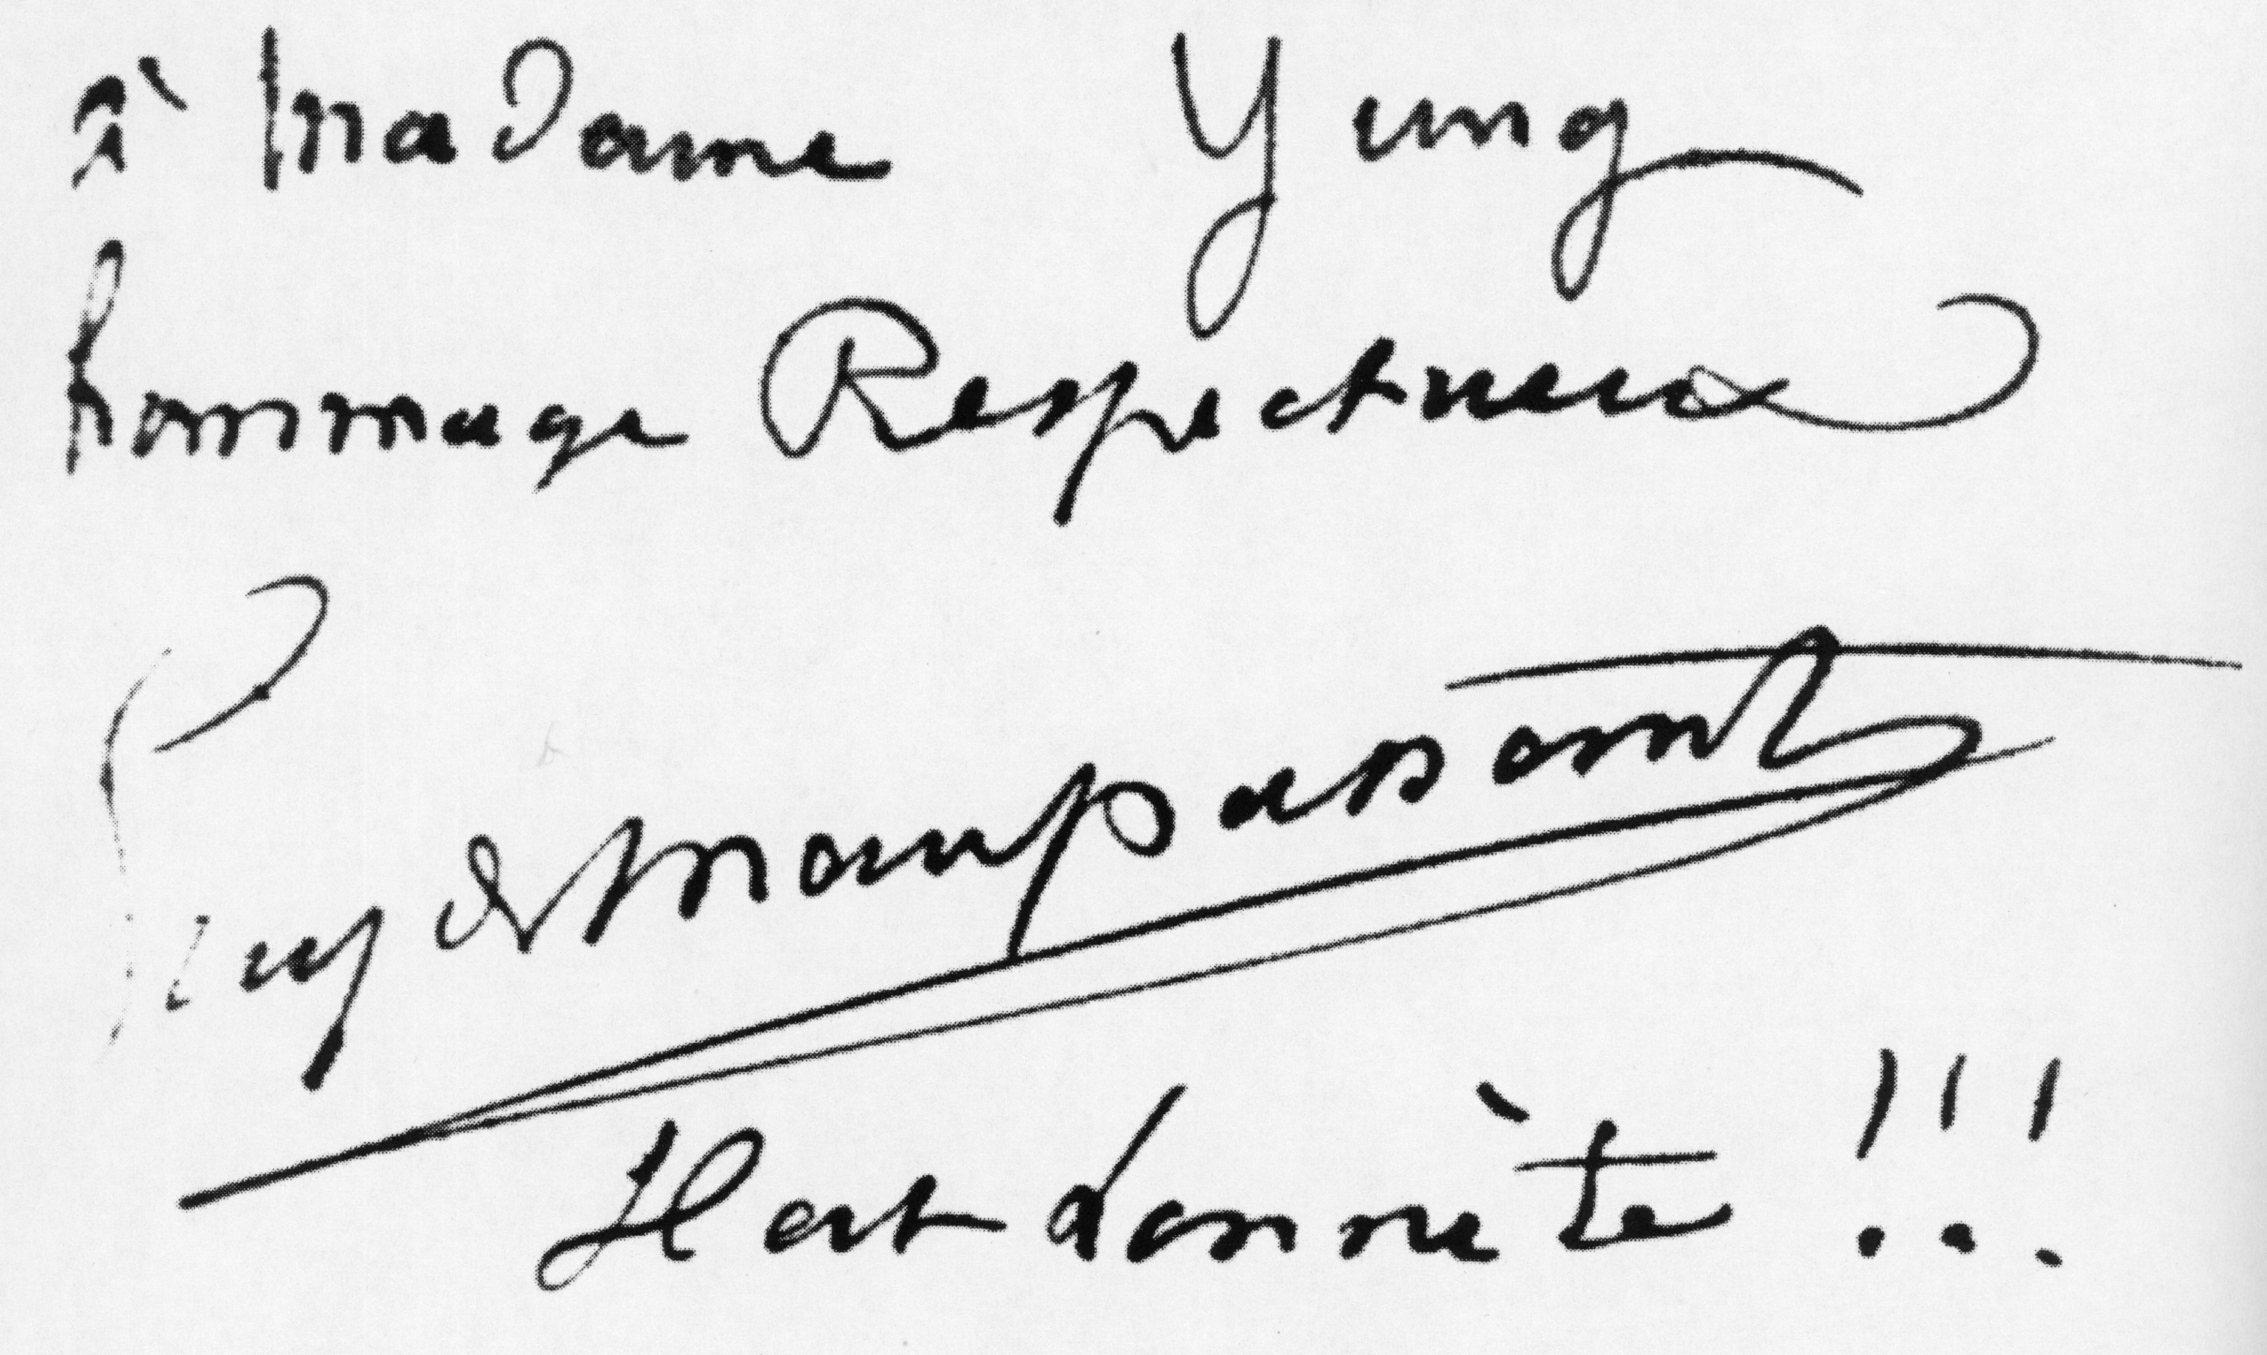 à Madame Yung
hommage Respectueux
Guy de Maupassant
Il est honnète !!!